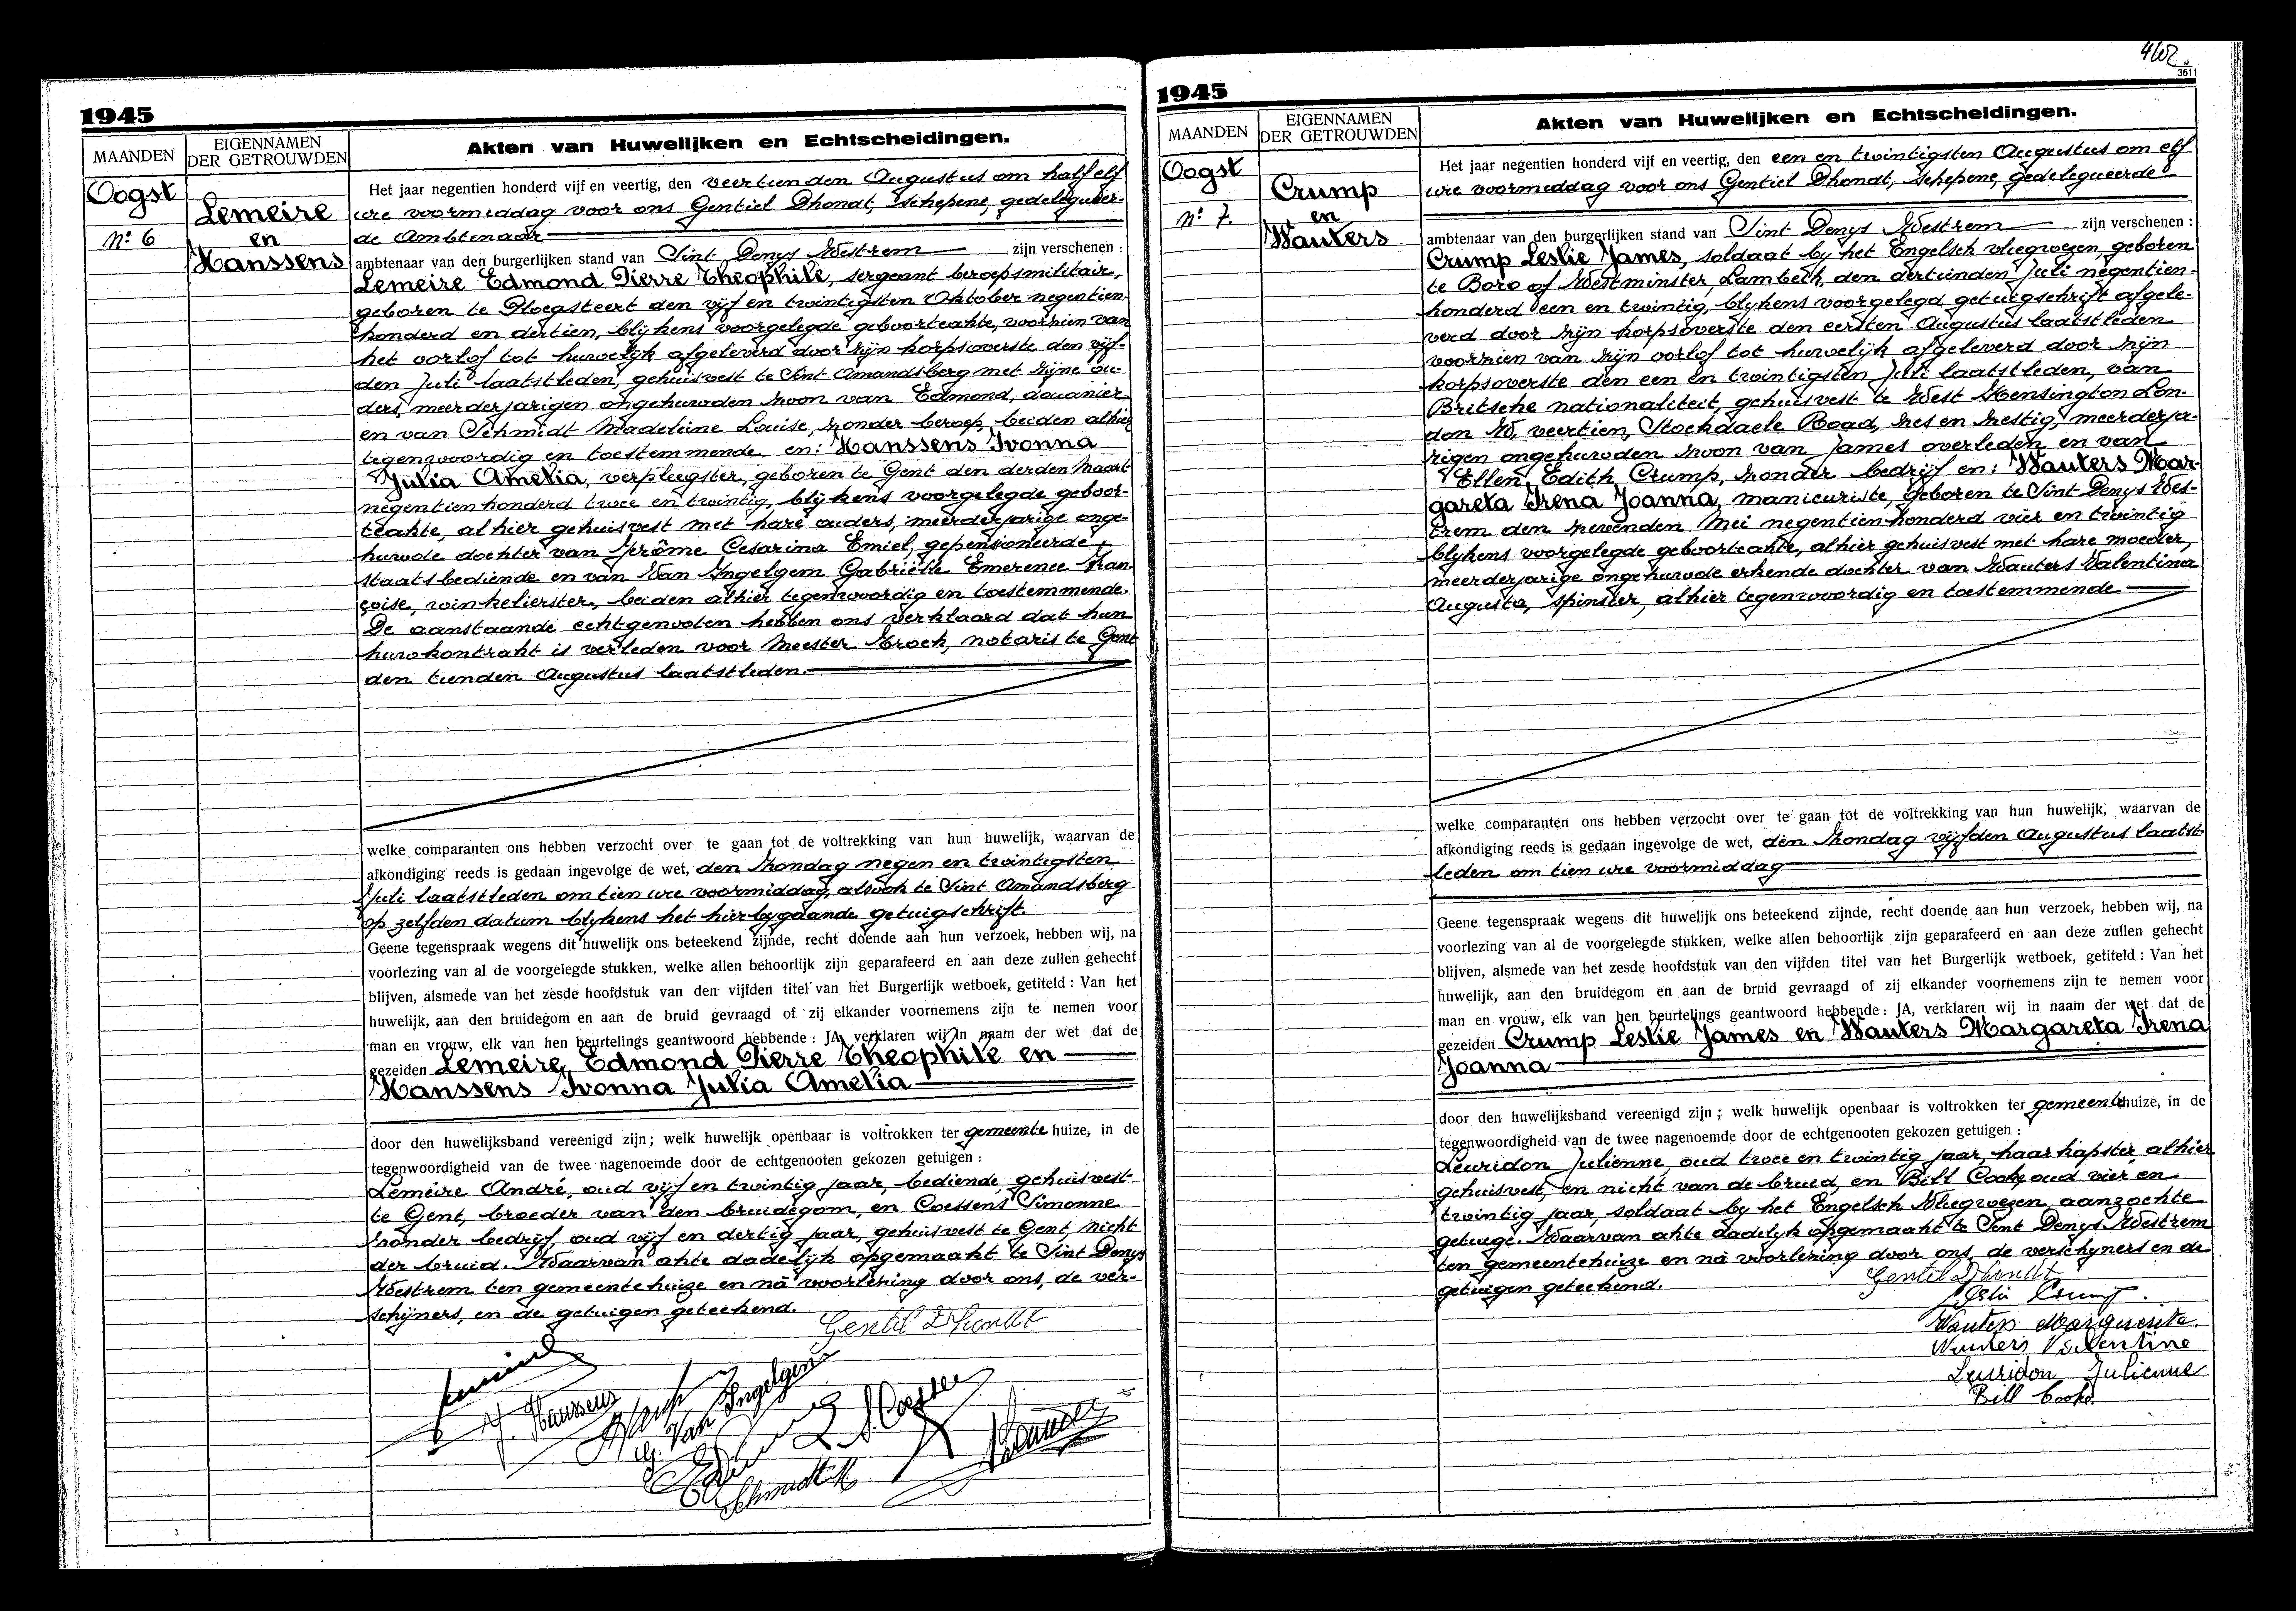 1945
MAANDEN
EIGENNAMEN
DER GETROUWDEN
Akten van Huwelijken en Echtscheidingen.
Oogst
Nº 6
Lemeire
en
Hanssens
Het jaar negentien honderd vijf en veertig, den veertienden Augustus om half elf
ure voormiddag voor ons Gentiel Dhondt, schepene, gedelegueer-
de Ambtenaar
ambtenaar van den burgerlijken stand van Sint Denys Westrem zijn verschenen :
Lemeire Edmond Pierre Theophile, sergeant beroepsmilitair,
geboren te Ploegsteert den vijf en twintigsten Oktober negentien-
honderd en dertien, blijkens voorgelegde geboorteakte, voorzien van
het oorlof tot huwelijk afgeleverd door zijn korpsoverste den vijf-
den Juli laatstleden, gehuisvest te Sint Amandsberg met zijne ou-
ders, meerderjarigen ongehuwden zoon van Edmond, douanier
en van Schmidt Madeleine Louise, zonder beroep, beiden alhier
tegenwoordig en toestemmende, en: Hanssens Ivonna
Julia Amelia, verpleegster, geboren te Gent den derden Maart
negentienhonderd twee en twintig, blijkens voorgelegde geboor-
teakte, alhier gehuisvest met hare ouders, meerderjarige onge-
huwde dochter van Jérôme Cesarina Emiel, gepensioneerde
staatsbediende en van Van Ingelgem Gabriëlle Emerence Fran-
çoise, winkelierster, beiden alhier tegenwoordig en toestemmende.
De aanstaande echtgenooten hebben ons verklaard dat hun
huwkontrakt is verleden voor Meester Krock, notaris te Gent
den tienden Augustus laatstleden.
welke comparanten ons hebben verzocht over te gaan tot de voltrekking van hun huwelijk, waarvan de
afkondiging reeds is gedaan ingevolge de wet, den Zondag negen en twintigsten
Juli laatstleden om tien ure voormiddag, alsook te Sint Amandsberg
op zelfden datum blykens het hierbygaande getuigschrift.
Geene tegenspraak wegens dit huwelijk ons beteekend zijnde, recht doende aan hun verzoek, hebben wij, na
voorlezing van al de voorgelegde stukken, welke allen behoorlijk zijn geparafeerd en aan deze zullen gehecht
blijven, alsmede van het zesde hoofdstuk van den vijfden titel van het Burgerlijk wetboek, getiteld : Van het
huwelijk, aan den bruidegom en aan de bruid gevraagd of zij elkander voornemens zijn te nemen voor
man en vrouw, elk van hen beurtelings geantwoord hebbende : JA, verklaren wij in naam der wet dat de
gezeiden Lemeire, Edmond Pierre Theophile en
Hanssens Ivonna Julia Amelia
door den huwelijksband vereenigd zijn ; welk huwelijk openbaar is voltrokken ter gemeente huize, in de
tegenwoordigheid van de twee nagenoemde door de echtgenooten gekozen getuigen :
Lemeire André, oud vijf en twintig jaar, bediende, gehuisvest
te Gent, broeder van den bruidegom, en Coessens Simonne
zonder bedrijf, oud vijf en dertig jaar, gehuisvest te Gent, nicht
der bruid. Waarvan akte dadelijk opgemaakt te Sint Denys
Westrem ten gemeentehuize en nà voorlezing door ons, de ver-
schijners, en de getuigen geteekend.
Gentil Dhondt
Hanssens
G. Van Ingelgem
Schmidt M
4102
3611
1945
MAANDEN
EIGENNAMEN
DER GETROUWDEN
Akten van Huwelijken en Echtscheidingen.
Oogst
Nº 7.
Crump
en
Wauters
Het jaar negentien honderd vijf en veertig, den een en twintigsten Augustus om elf
ure voormiddag voor ons Gentiel Dhondt, schepene, gedelegueerde
ambtenaar van den burgerlijken stand van Sint Denys Westrem zijn verschenen :
Crump Leslie James, soldaat by het Engelsch vliegwezen, geboren
te Boro of Westminster, Lambeth, den dertienden Juli negentien-
honderd een en twintig, blykens voorgelegd getuigschrift afgele-
verd door zijn korpsoverste den eersten Augustus laatstleden
voorzien van zijn oorlof tot huwelijk afgeleverd door zijn
korpsoverste den een en twintigsten Juli laatstleden, van
Britsche nationaliteit, gehuisvest te West Kensington Lon-
don W. veertien, Stockdaele Road, zes en zestig, meerderja-
rigen ongehuwden zoon van James overleden en van
Ellen, Edith Crump, zonder bedrijf en: Wauters Mar-
gareta Irena Joanna, manicuriste, geboren te Sint Denys Wes-
trem den zevenden Mei negentienhonderd vier en twintig
blykens voorgelegde geboorteakte, alhier gehuisvest met hare moeder,
meerderjarige ongehuwde erkende dochter van Wauters Valentina
Augusta, spinster, alhier tegenwoordig en toestemmende
welke comparanten ons hebben verzocht over te gaan tot de voltrekking van hun huwelijk, waarvan de
afkondiging reeds is gedaan ingevolge de wet, den Zondag vijfden Augustus laatst-
leden om tien ure voormiddag
Geene tegenspraak wegens dit huwelijk ons beteekend zijnde, recht doende aan hun verzoek, hebben wij, na
voorlezing van al de voorgelegde stukken, welke allen behoorlijk zijn geparafeerd en aan deze zullen gehecht
blijven, alsmede van het zesde hoofdstuk van den vijfden titel van het Burgerlijk wetboek, getiteld : Van het
huwelijk, aan den bruidegom en aan de bruid gevraagd of zij elkander voornemens zijn te nemen voor
man en vrouw, elk van hen beurtelings geantwoord hebbende : JA, verklaren wij in naam der wet dat de
gezeiden Crump Leslie James en Wauters Margareta Irena
Joanna
door den huwelijksband vereenigd zijn ; welk huwelijk openbaar is voltrokken ter gemeentehuize, in de
tegenwoordigheid van de twee nagenoemde door de echtgenooten gekozen getuigen :
Leuridon Julienne, oud twee en twintig jaar, haarkapster, alhier
gehuisvest, en nicht van de bruid, en Bill Cooke, oud vier en
twintig jaar, soldaat by het Engelsch Vliegwezen aanzochte
getuige. Waarvan akte dadelyk opgemaakt te Sint Denys Westrem
ten gemeentehuize en nà voorlezing door ons, de verschyners en de
getuigen geteekend.
Gentil Dhondt
Leslie Crump.
Wauters Marguerite.
Wauters Valentine
Leuridon Julienne
Bill Cooke.